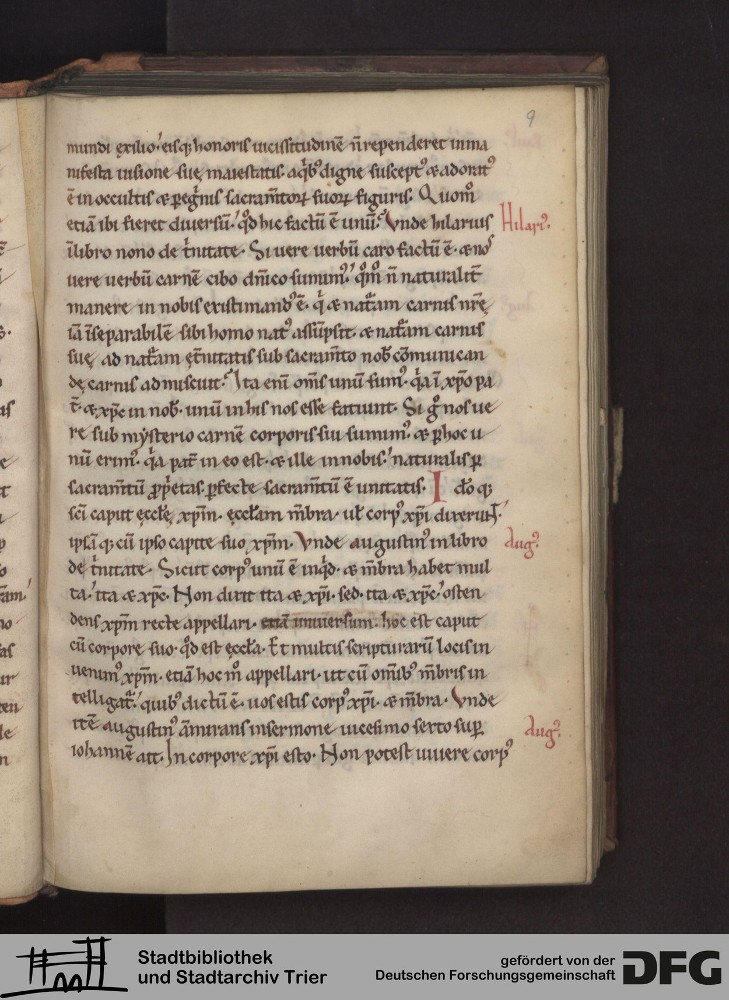 9
mundi exilio. eisq; honoris uicissitudinē n̄ rependeret in ma
nifesta uisione suę maiestatis. a qͥbꝰ digne susceptꝰ & adoratꝰ
ē in occultis & peg̃nis sacram̄toꝝ suoꝝ figuris. Quom̊
etiā ibi fieret diuersū. qđ hic factū ē unū. Vnde hilarius
Hilariꝰ.
ī libro nono de t̄nitate. Si uere uerbū caro factū ē. & nos
uere uerbū carnē cibo dn̄ico sumimꝰ. qͦm̊ n̄ naturalit̄
manere in nobis existimandꝰ ē. qͥ & nat̄am carnis nr̄ę
iā īseparabilē sibi homo natꝰ assūpsit. & nat̄am carnis
suę ad nat̄am ęt̄nitatis sub sacram̄to nob̄ cōmunican
dę carnis admiscuit. Ita eni̅ om̄s unū sumꝰ. qͥa ī xp̄o pa
t̄. & xp̄c in nob̄. unū in his nos esse faciunt. Si g̊ nos ue
re sub mẏsterio carnē corporis sui sumimꝰ. & ꝑ hoc u
nū erimꝰ. qͥa pat̄ in eo est. & ille in nobis. naturalis ꝑ
sacram̄tū ꝓp̄etas. ꝑfecte sacram̄tū ē unitatis. I đo q;
sc̄i caput ęccłę xp̄m. ęccłam m̄bra. uł corpꝰ xp̄i dixerunt.
ipsā q; cū ipso capite suo xp̄m. Vnde augustinꝰ in libro
Augꝰ.
de t̄nitate. Sicut corpꝰ unū ē inqͥđ. & m̄bra habet mul
ta. ita & xp̄c. Non dixit ita & xp̄i. sed. ita & xp̄c. osten
dens xp̄m recte appellari. etiā uniuersum. hoc est caput
cū corpore suo. qđ est ęccła. Et multis scripturarū locis in
uenimꝰ xp̄m. etiā hoc m̊ appellari. ut cū om̄ibꝰ m̄bris in
telligat̄. quibꝰ dictū ē. uos estis corpꝰ xp̄i. & m̄bra. Vnde
itē augustinꝰ āmirans in sermone uicesimo sexto suꝑ
Augꝰ.
iohannē ait. In corpore xp̄i esto. Non potest uiuere corpꝰ
Stadtbibliothek
und Stadtarchiv Trier
gefördert von der
Deutschen Forschungsgemeinschaft
DFG